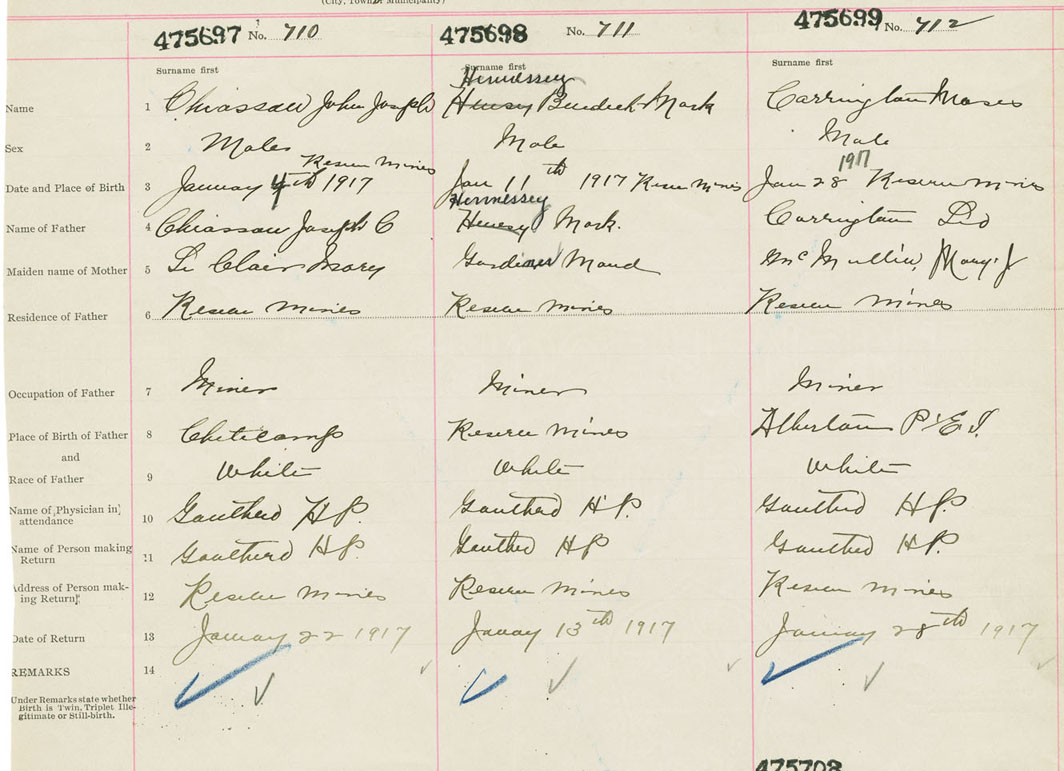 (City, Town or Municipality)
475697 No. 710 475698 No. 711 475699 No. 712
Surname first Surname first Surname first
Hennessey
Name 1 Chiasson John Joseph Henesy Mark Carrington Moses
Sex 2 Male Male Male
Reserve Mines 1917
Date and Place of Birth 3 January 4th 1917 Jan 11th 1917 Reserve Mines Jan 28 Reserve Mines
Hennessey
Name of Father 4 Chiasson Joseph C Henesy Mark. Carrington Leo
Maiden name of Mother 5 Le Clair Mary Gardiner Maud McMullin, Mary J
Residence of Father 6 Reserve Mines Reserve Mines Reserve Mines
Occupation of Father 7 Miner Miner Miner
Place of Birth of Father 8 Cheticamp Reserve Mines Alberton P.E.I.
and
Race of Father 9 White White White
Name of Physician in attendance 10 H P. H P. H P.
Name of Person making Return 11 H P. H P. H P.
Address of Person making Return 12 Reserve Mines Reserve Mines Reserve Mines
Date of Return 13 January 22 1917 Januay 13th 1917 January 28th 1917
REMARKS 14
Under Remarks state whether
Birth is Twin, Triplet Ille-
gitimate or Still-birth.
475708